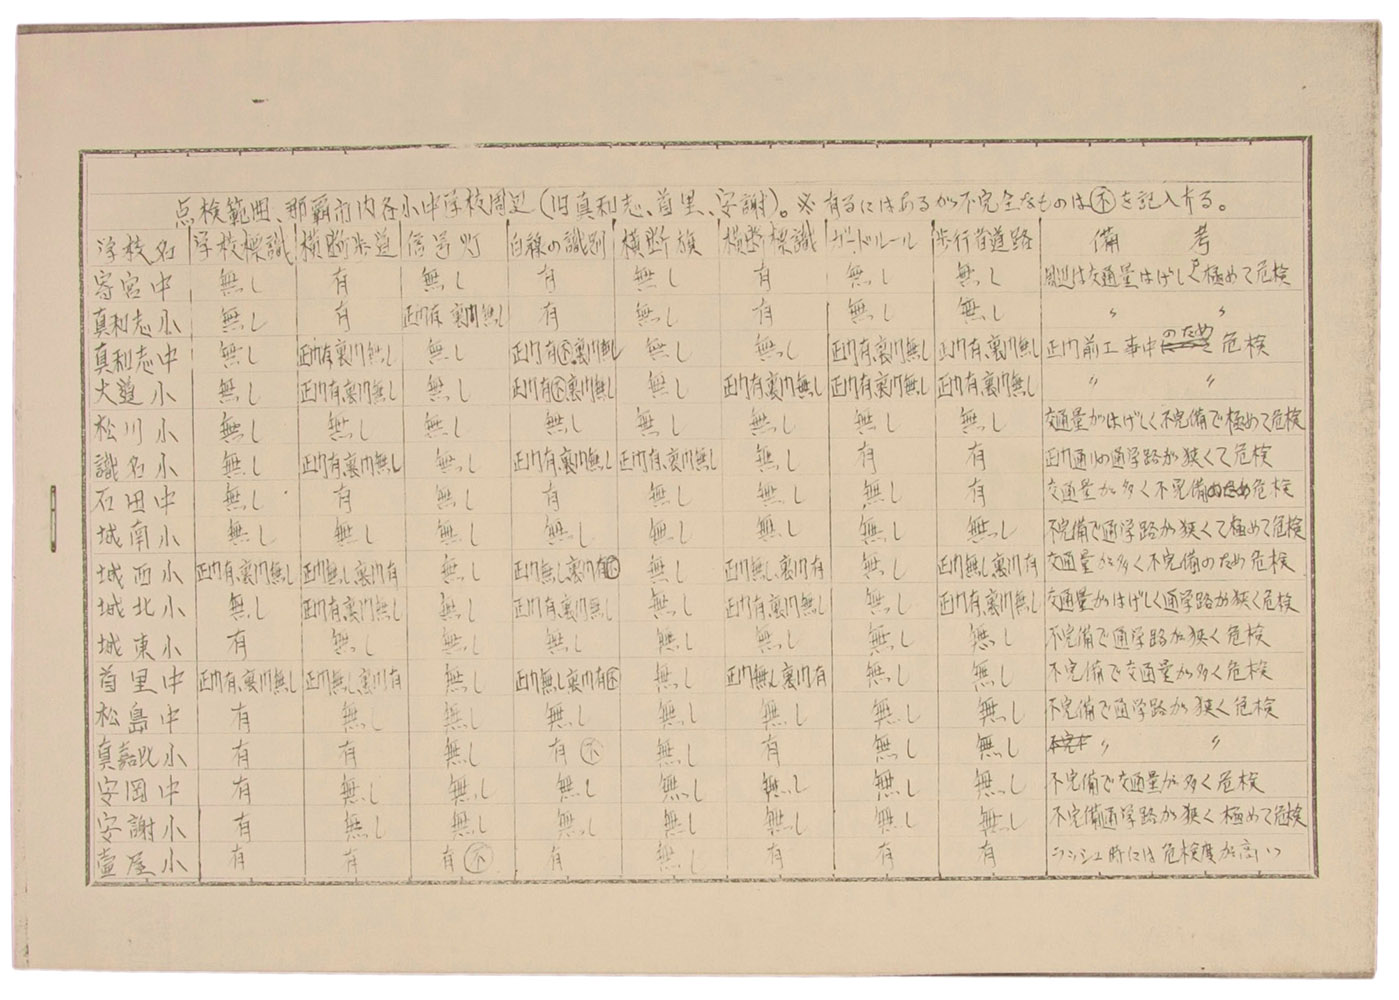 点検範囲、那覇市内各小中学校周辺(旧真和志、首里、安謝)。※ 有るにはあるが不完全なものは㊁を記入する。
学校名 学校標識 横断歩道 信号灯 白線の識別 横断旗 横断標識 ガードルール 歩行者道路 備考
寄宮中 無し 有 無し 有 無し 有 無し 無し 周辺は交通量はげしく極めて危検
真和志小 無し 有 正门有、裏门無し 有 無し 有 無し 無し 〃 〃
真和志中 無し 正门有、裏门無し 無し 正门有(不)、裏门無し 無し 無し 正门有、裏门無し 正门有、裏门無し 正门前工事中のため危検
大道小 無し 正门有、裏门無し 無し 正门有(不)、裏门無し 無し 正门有、裏门無し 正门有、裏门無し 正门有、裏门無し 〃 〃
松川小 無し 無し 無し 無し 無し 無し 無し 無し 交通量がはげしく不完備で極めて危検
識名小 無し 正门有、裏门無し 無し 正门有、裏门無し 正门有、裏门無し 無し 有 有 正门通りの通学路が狭くて危検
石田中 無し 有 無し 有 無し 無し 無し 有 交通量が多く不完備のため危検
城南小 無し 無し 無し 無し 無し 無し 無し 無し 不完備で通学路が狭くて極めて危検
城西小 正门有、裏门無し 正门無し、裏门有 無し 正门無し、裏门有(不) 無し 正门無し、裏门有 無し 正门無し、裏门有 交通量が多く不完備のため危検
城北小 無し 正门有、裏门無し 無し 正门有、裏门無し 無し 正门有、裏门無し 無し 正门有、裏门無し 交通量がはげしく通学路が狭く危検
城東小 有 無し 無し 無し 無し 無し 無し 無し 不完備で通学路が狭く危検
首里中 正门有、裏门無し 正门無し、裏门有 無し 正门無し、裏门有(不) 無し 正门無し、裏门有 無し 無し 不完備で交通量が多く危検
松島中 有 無し 無し 無し 無し 無し 無し 無し 不完備で通学路が狭く危検
真嘉比小 有 有 無し 有(不) 無し 有 無し 無し 〃 〃
安岡中 有 無し 無し 無し 無し 無し 無し 無し 不完備で交通量が多く危検
安謝小 有 無し 無し 無し 無し 無し 無し 無し 不完備通学路が狭く極めて危検
壷屋小 有 有 有(不) 有 無し 有 有 有 ラッシュ時には危検度が高い